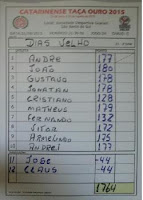 CATARINENSE TAÇA OURO 2015
DIAS VELHO
1 ANDRÉ 177
2 JOÃO 180
3 GUSTAVO 178
4 JONATAN 178
5 CRISTIANO 128
6 MATHEUS 179
7 FERNANDO 132
8 VITOR 172
9 ARMELINDO 175
10 ANDREI 177
11 JOSÉ -44
12 CLAUS -44
1764